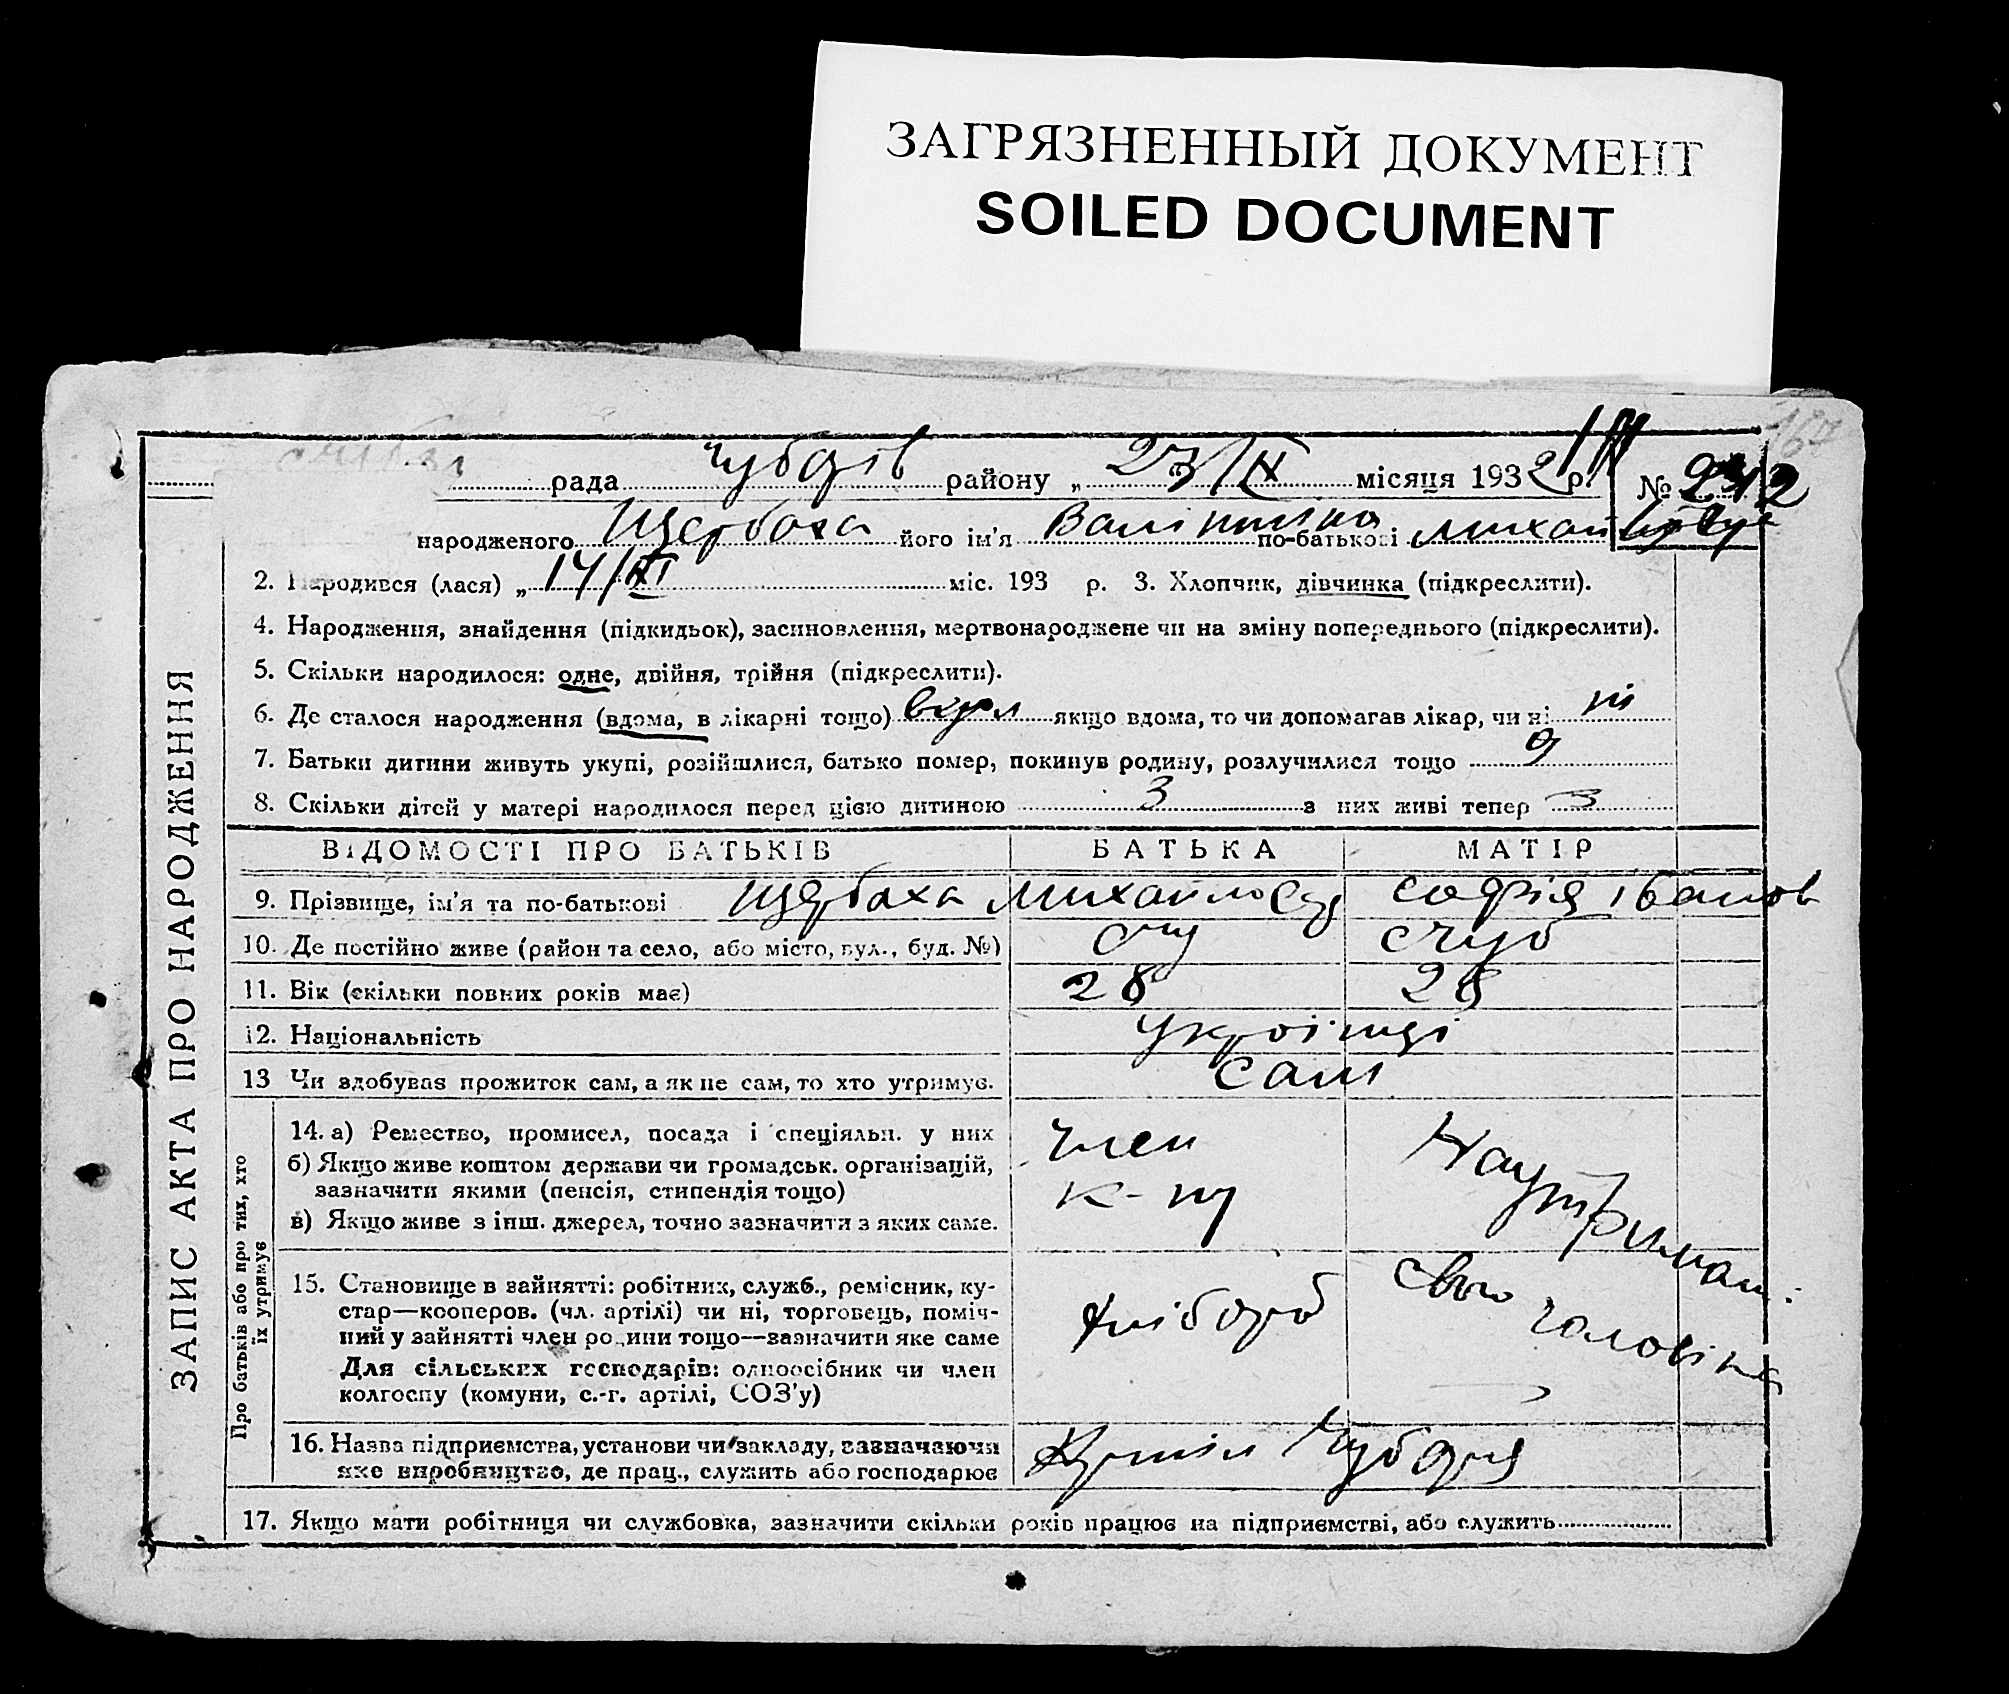 ЗАГРЯЗНЕННЫЙ ДОКУМЕНТ
SOILED DOCUMENT
рада района району „ 23/IX місяця 1932 р. №
народженого Щербаха його ім'я Валінтина по-батькові Михай
2. Народився (лася) „ 14/ міс. 193 р. 3. Хлопчик, дівчинка (підкреслити).
4. Народження, знайдення (підкидьок), засиновлення, мертвонароджене чи на зміну попереднього (підкреслити).
5. Скільки народилося: одне, двійня, трійня (підкреслити).
6. Де сталося народження (вдома, в лікарні тощо) якщо вдома, то чи допомагав лікар, чи ні ні
7. Батьки дитини живуть укупі, розійшлися, батько помер, покинув родину, розлучилися тощо
8. Скільки дітей у матері народилося перед цією дитиною 3 з них живі тепер 3
ЗАПИС АКТА ПРО НАРОДЖЕННЯ
ВІДОМОСТІ ПРО БАТЬКІВ БАТЬКА МАТІР
9. Прізвище, ім'я та по-батькові Щербаха Михайло Софія Іванов
10. Де постійно живе (район та село, або місто, вул., буд. №) с чуб
11. Вік (скільки повних років має) 28 28
12. Національність Українці
13 Чи здобував прожиток сам, а як не сам, то хто утримує. Сам
Про батьків або про тих, хто їх утримує
14. а) Ремество, промисел, посада і спеціяльн. у них член
б) Якщо живе коштом держави чи громадськ. організацій,
зазначити якими (пенсія, стипендія тощо)
в) Якщо живе з інш. джерел, точно зазначити з яких саме.
На утриман.
15. Становище в зайнятті: робітник, служб., ремісник, ку-
стар—кооперов. (чл. артілі) чи ні, торговець, поміч-
ний у зайнятті член родини тощо—зазначити яке саме
Для сільських господарів: одноосібник чи член
колгоспу (комуни, с.-г. артілі, СОЗ'у)
хлібороб свого чоловіка
16. Назва підприємства, установи чи закладу, зазначаючи
яке виробництво, де прац., служить або господарює
17. Якщо мати робітниця чи службовка, зазначити скільки років працює на підприємстві, або служить